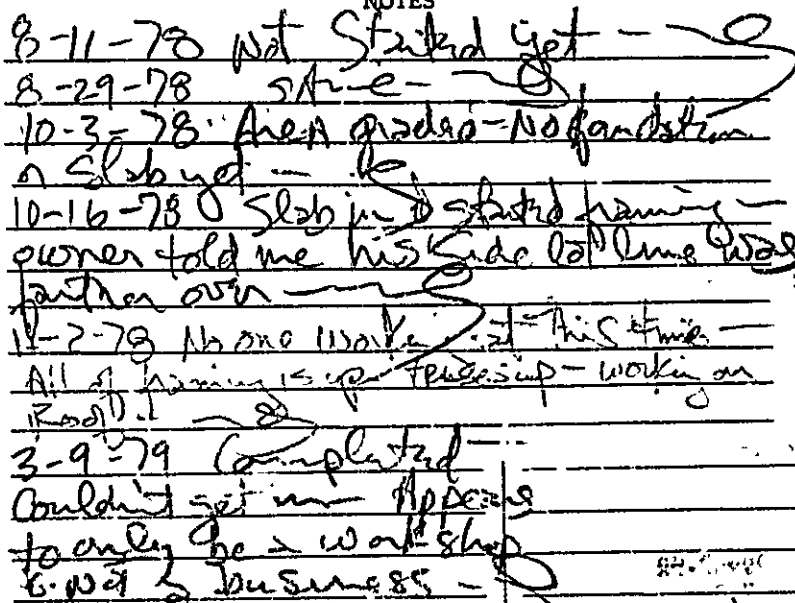 NOTES
8-11-78 Not Started yet -
8-29-78 same -
10-3-78 Area graded - No foundation
or Slab yet -
10-16-78 Slab in & started framing -
owner told me his side lot line was
farther over -
11-2-78 No one working at this time -
All of framing is up Trusses up - working on
Roof -
3-9-79 Completed -
Couldn't get in - Appears
to only be a work shop
& not a business -